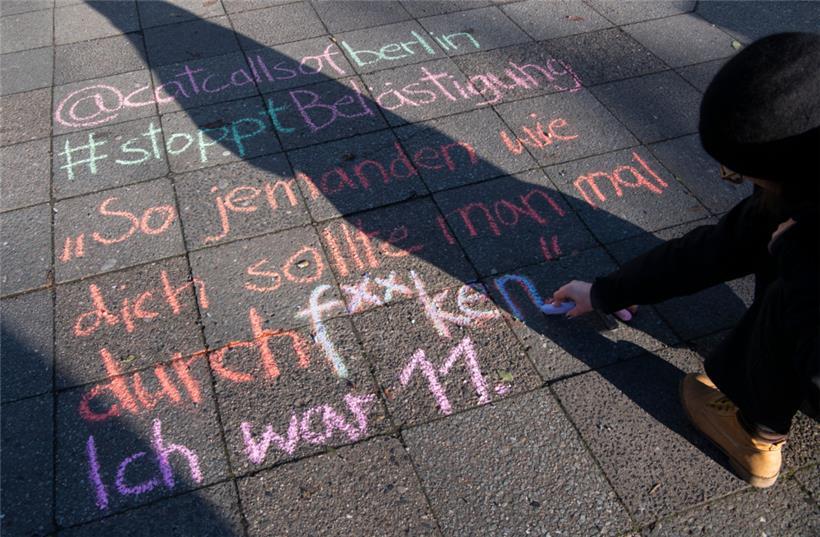 @catcallsofberlin
#stoppt Belästigung
„So jemanden wie
dich sollte man mal
durchfxxken“
Ich war 11.